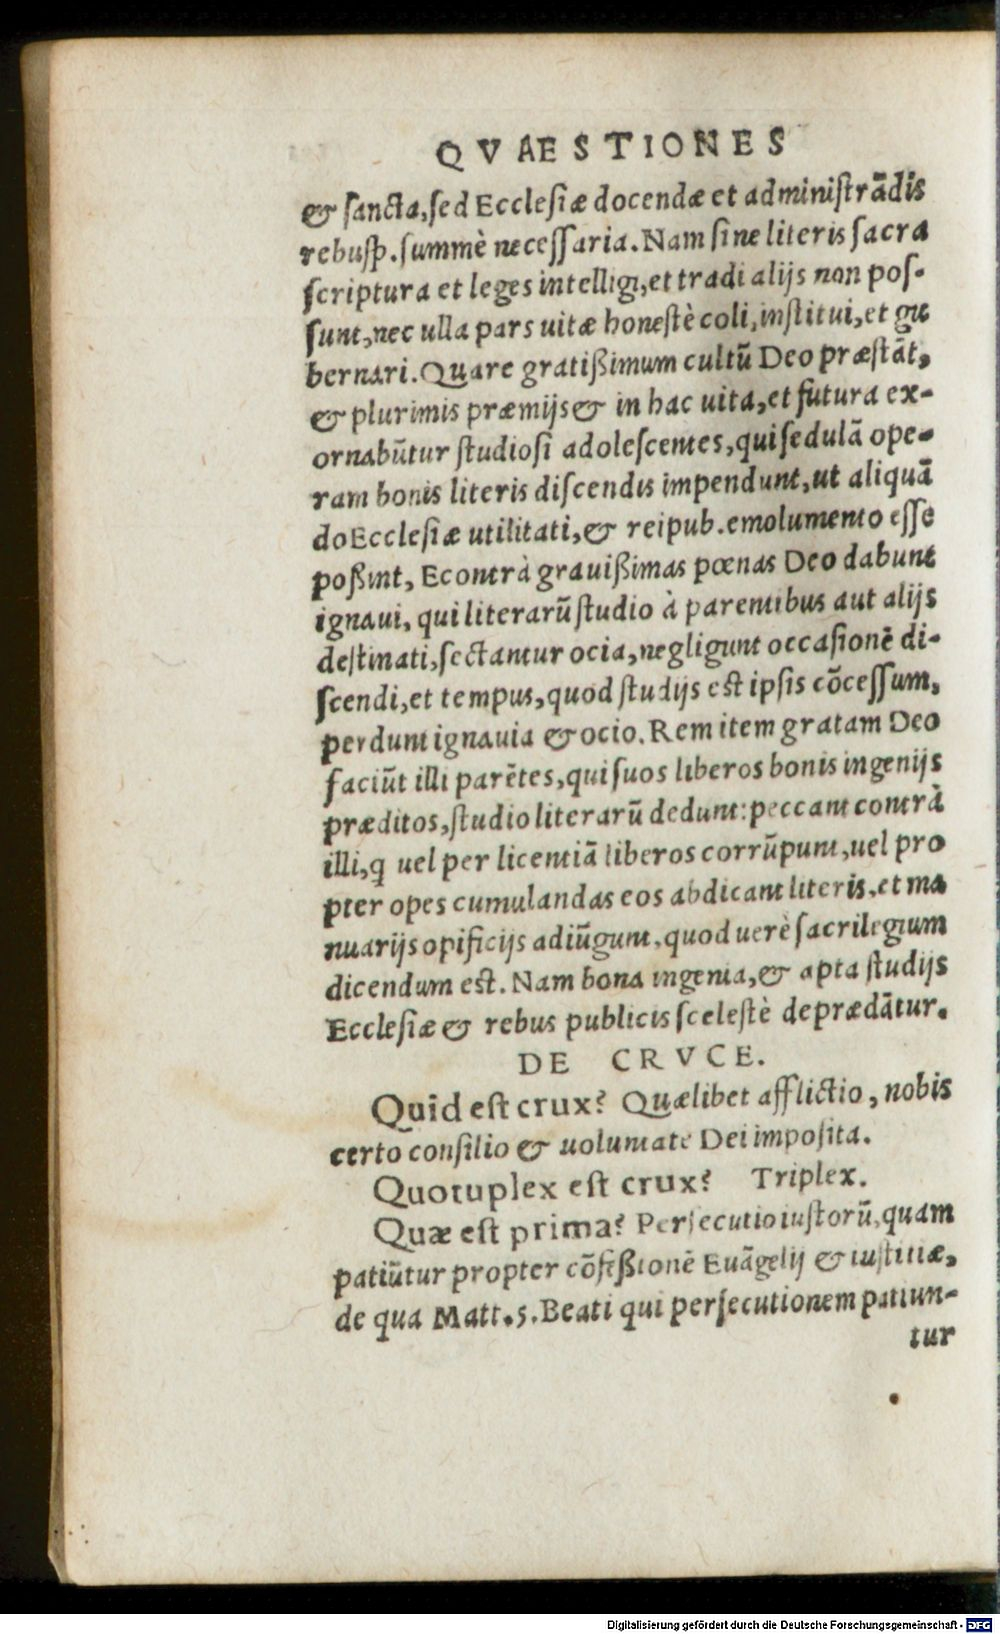 QVAESTIONES
& ſancta, ſed Eccleſiæ docendæ et adminiſtrãdis
rebuſp. ſummè neceſſaria. Nam ſine literis ſacra
ſcriptura et leges intelligi, et tradi alijs non poſ-
ſunt, nec ulla pars uitæ honeſtè coli, inſtitui, et gu
bernari. Quare gratißimum cultũ Deo præſtãt,
& plurimis præmijs & in hac uita, et futura ex-
ornabũtur ſtudioſi adoleſcentes, qui ſedulã ope-
ram bonis literis diſcendis impendunt, ut aliquã
do Eccleſiæ utilitati, & reipub. emolumento eſſe
poßint, Econtrà grauißimas pœnas Deo dabunt
ignaui, qui literarũ ſtudio à parentibus aut alijs
deſtinati, ſectantur ocia, negligunt occaſionẽ di-
ſcendi, et tempus, quod ſtudijs eſt ipſis cõceſſum,
perdunt ignauia & ocio. Rem item gratam Deo
faciũt illi parẽtes, qui ſuos liberos bonis ingenijs
præditos, ſtudio literarũ dedunt: peccant contrà
illi, q uel per licentiã liberos corrũpunt, uel pro
pter opes cumulandas eos abdicant literis, et ma
nuarijs opificijs adiũgunt, quod uerè ſacrilegium
dicendum eſt. Nam bona ingenia, & apta ſtudijs
Eccleſiæ & rebus publicis ſceleſtè deprædãtur.
DE CRVCE.
Quid eſt crux? Quælibet afflictio, nobis
certo conſilio & uoluntate Dei impoſita.
Quotuplex eſt crux? Triplex.
Quæ eſt prima? Perſecutio iuſtorũ, quam
patiũtur propter cõfeßionẽ Euãgelij & iuſtitiæ,
de qua Matt. 5. Beati qui perſecutionem patiun-
tur
Digitalisierung gefördert durch die Deutsche Forschungsgemeinschaft - DFG